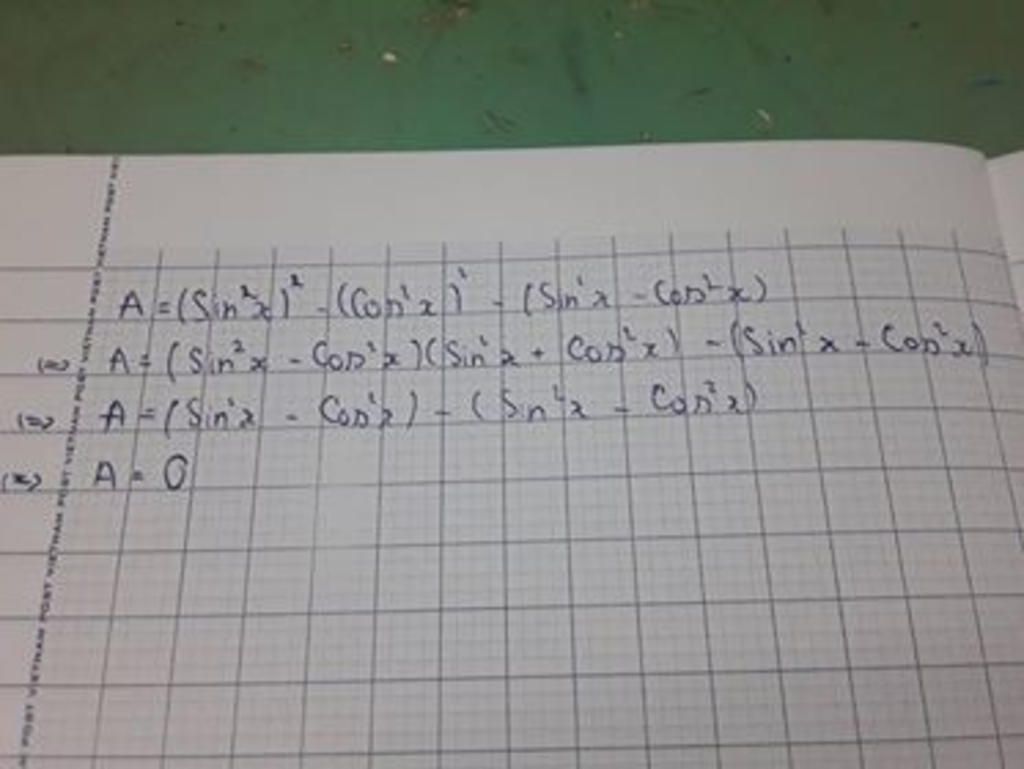 A = (Sin²x)² - (Cos²x)² - (Sin²x - Cos²x)
(=) A = (Sin²x - Cos²x)(Sin²x + Cos²x) - (Sin²x - Cos²x)
(=) A = (Sin²x - Cos²x) - (Sin²x - Cos²x)
(=) A = 0
POST VIETNAM POST VIETNAM POST VIETNAM POST VIETNAM POST VIETNAM POST